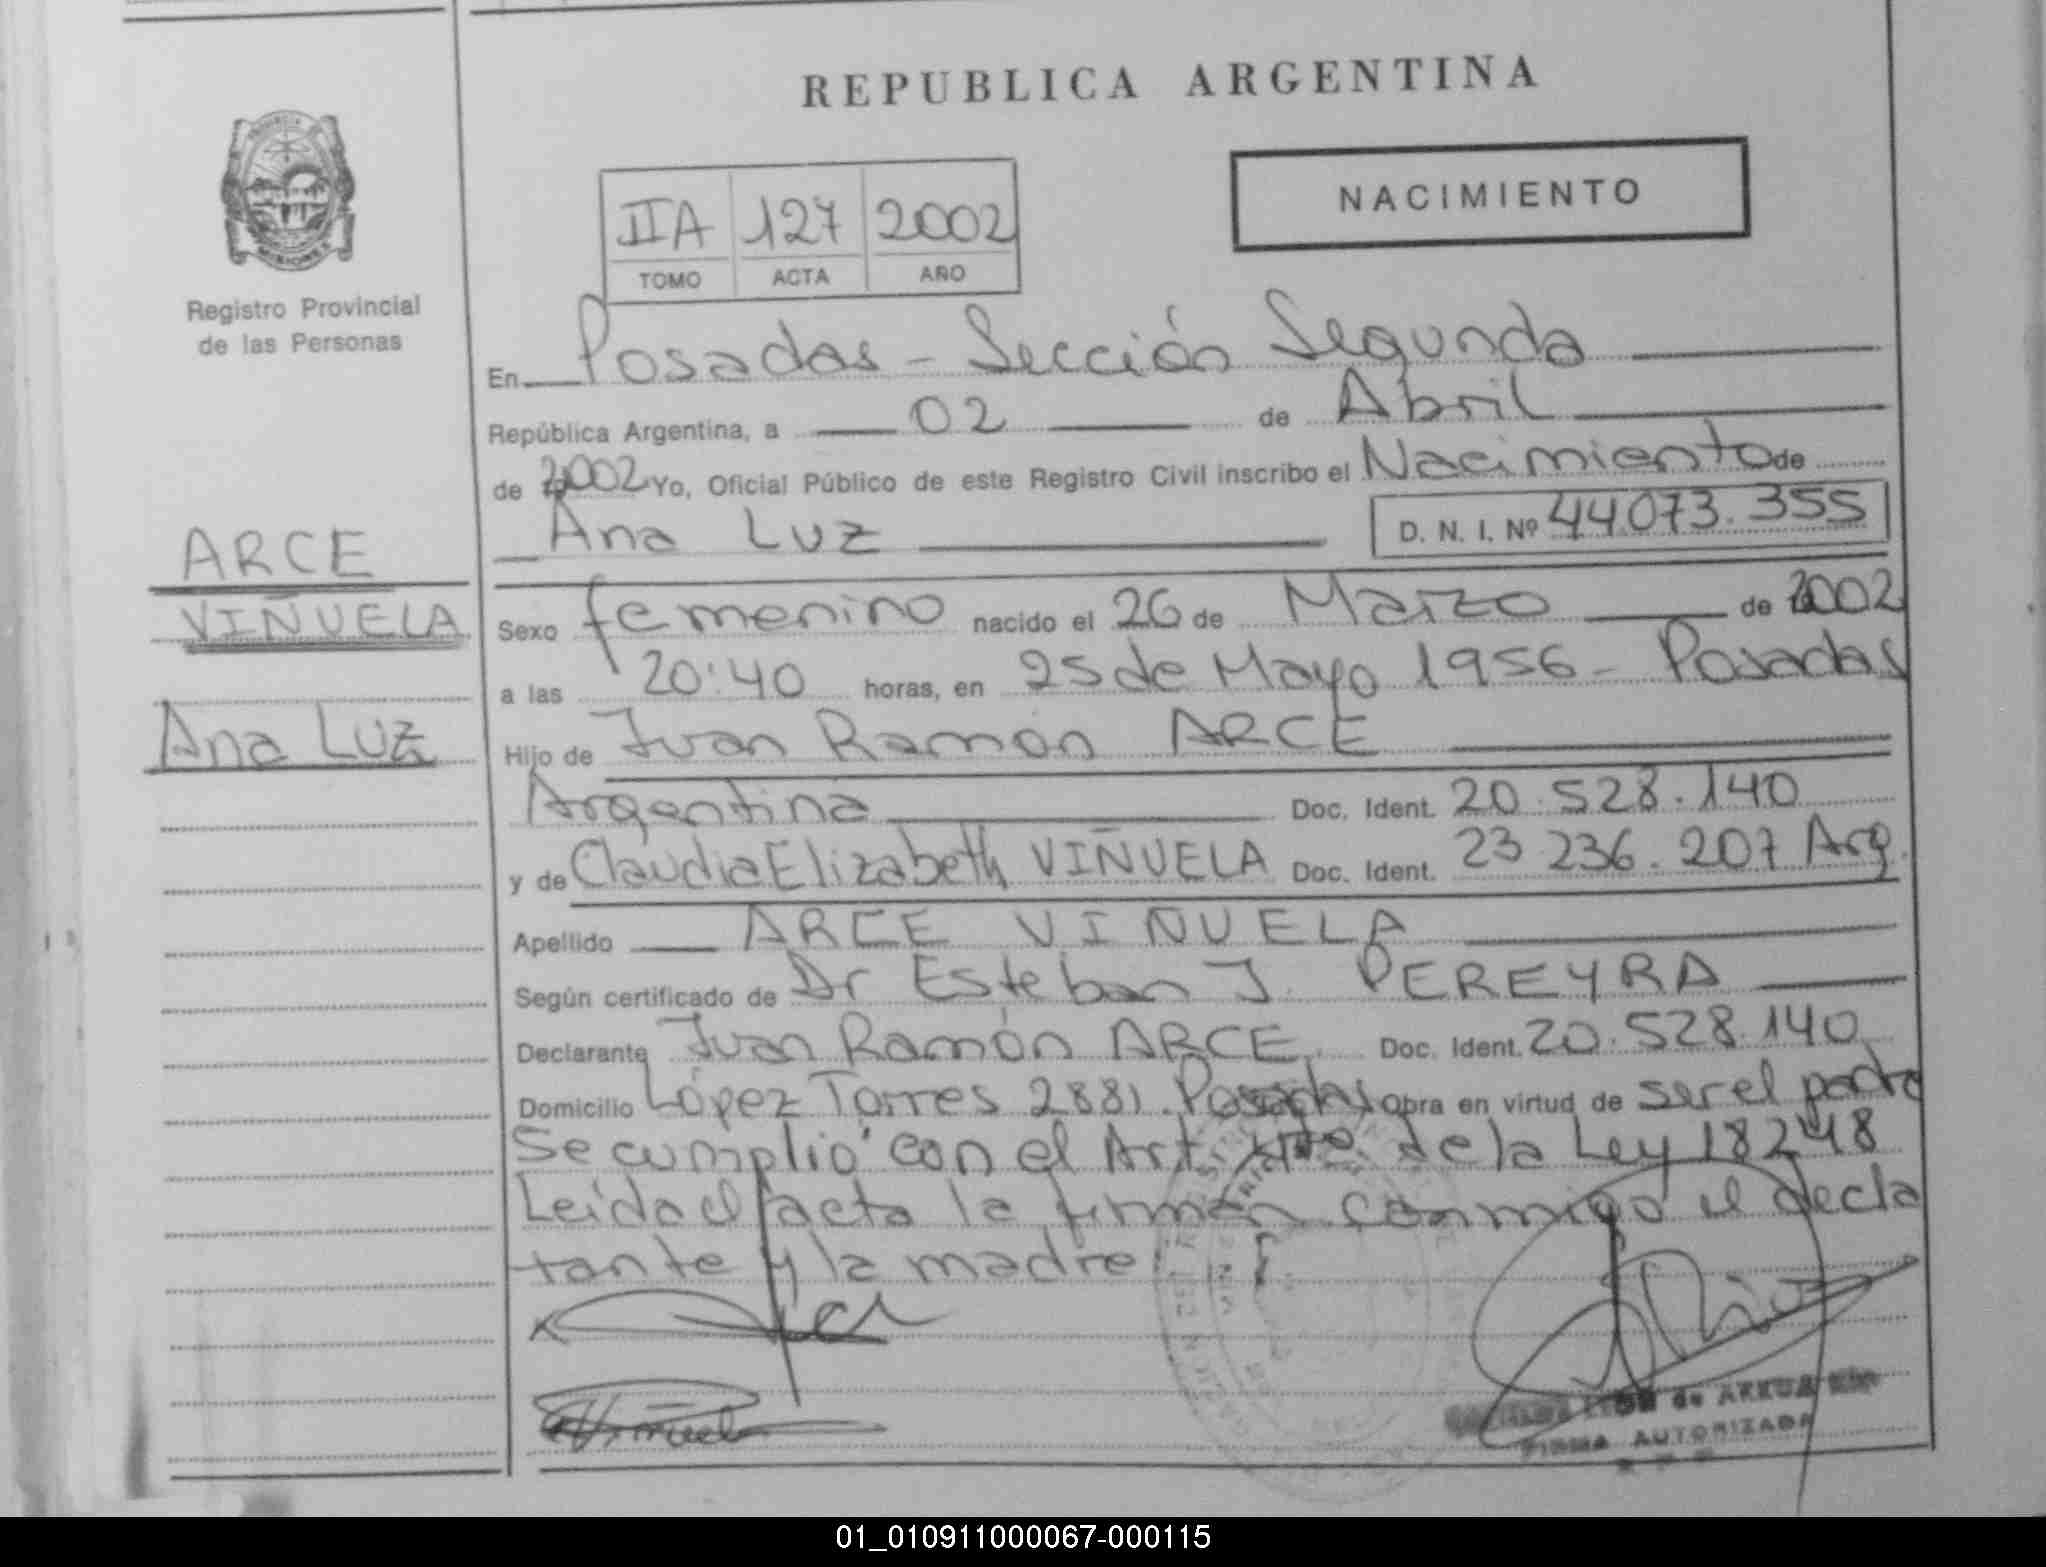 REPUBLICA ARGENTINA
NACIMIENTO
IIA 127 2002
TOMO ACTA AÑO
PROVINCIA DE
MISIONES
Registro Provincial
de las Personas
En Posadas - Sección Segunda
República Argentina, a 02 de Abril
de 2002 Yo, Oficial Público de este Registro Civil inscribo el Nacimiento de
Ana Luz D. N. I. Nº 44.073.355
ARCE
VIÑUELA
Ana Luz
Sexo femenino nacido el 26 de Marzo de 2002
a las 20:40 horas, en 25 de Mayo 1956 - Posadas
Hijo de Juan Ramón ARCE
Argentina Doc. Ident. 20.528.140
y de Claudia Elizabeth VIÑUELA Doc. Ident. 23 236.207 Arg.
Apellido ARCE VIÑUELA
Según certificado de Dr Esteban J. PEREYRA
Declarante Juan Ramón ARCE Doc. Ident. 20.528.140
Domicilio López Torres 2881. Posadas obra en virtud de ser el padre
Se cumplió con el Art. de la Ley 18248
Leida el acta la firman conmigo el decla
rante y la madre
Viñuela
de ARRUA
FIRMA AUTORIZADA
01_010911000067-000115